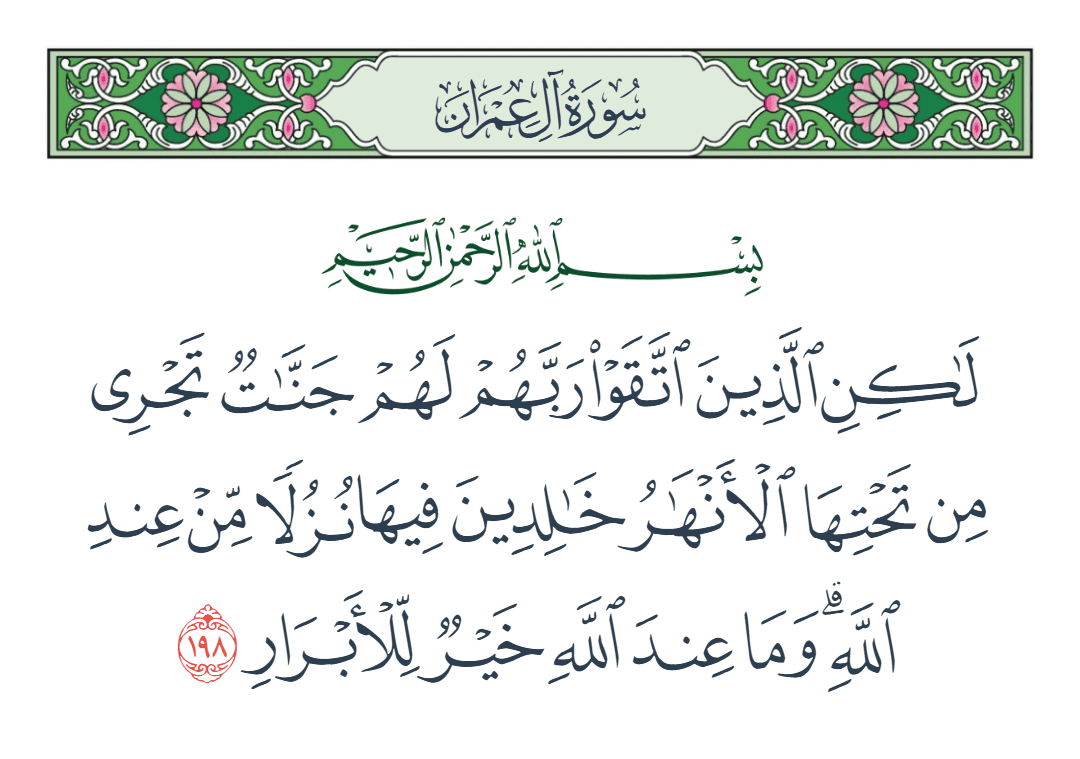 سُورَةُ آلِ عِمْرَانَ
بِسْمِ ٱللَّهِ ٱلرَّحْمَٰنِ ٱلرَّحِيمِ
لَٰكِنِ ٱلَّذِينَ ٱتَّقَوْا۟ رَبَّهُمْ لَهُمْ جَنَّٰتٌ تَجْرِى
مِن تَحْتِهَا ٱلْأَنْهَٰرُ خَٰلِدِينَ فِيهَا نُزُلًا مِّنْ عِندِ
ٱللَّهِ ۗ وَمَا عِندَ ٱللَّهِ خَيْرٌ لِّلْأَبْرَارِ ١٩٨